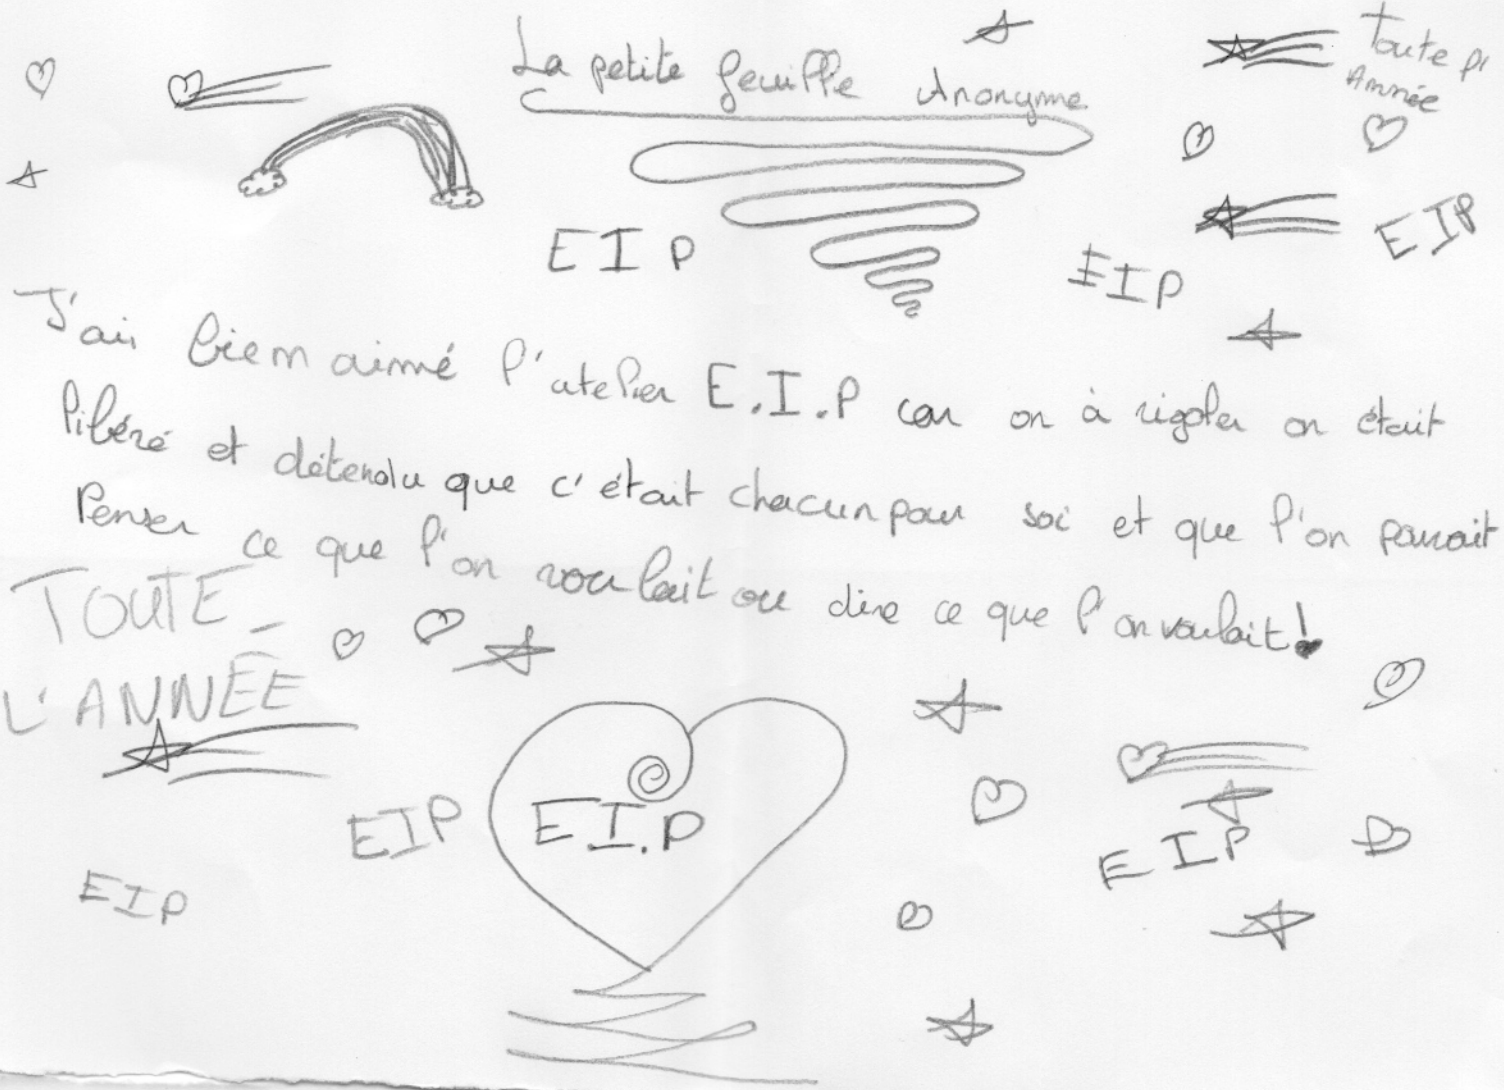 La petite feuille Anonyme
Toute l'
Année
EIP
EIP
EIP
J'ai bien aimé l'atelier E.I.P car on à rigoler on était
libéré et détendu que c'était chacun pour soi et que l'on pouvait
Penser ce que l'on voulait ou dire ce que l'on voulait!
TOUTE
L'ANNÉE
EIP
E I.P
EIP
EIP